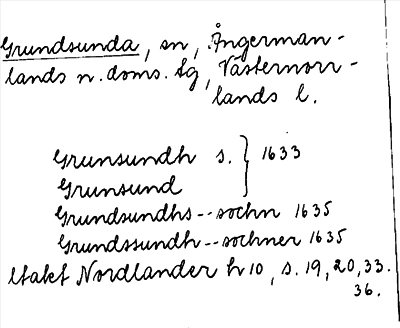 Grundsunda, sn, Ångerman-
lands n. doms. tg, Västernorr-
lands l.
Grunsundh s. } 1633
Grunsund
Grundsundhs--sochn 1635
Grundssundh--sochner 1635
Utakt Nordlander h 10, s. 19, 20, 33.
36.